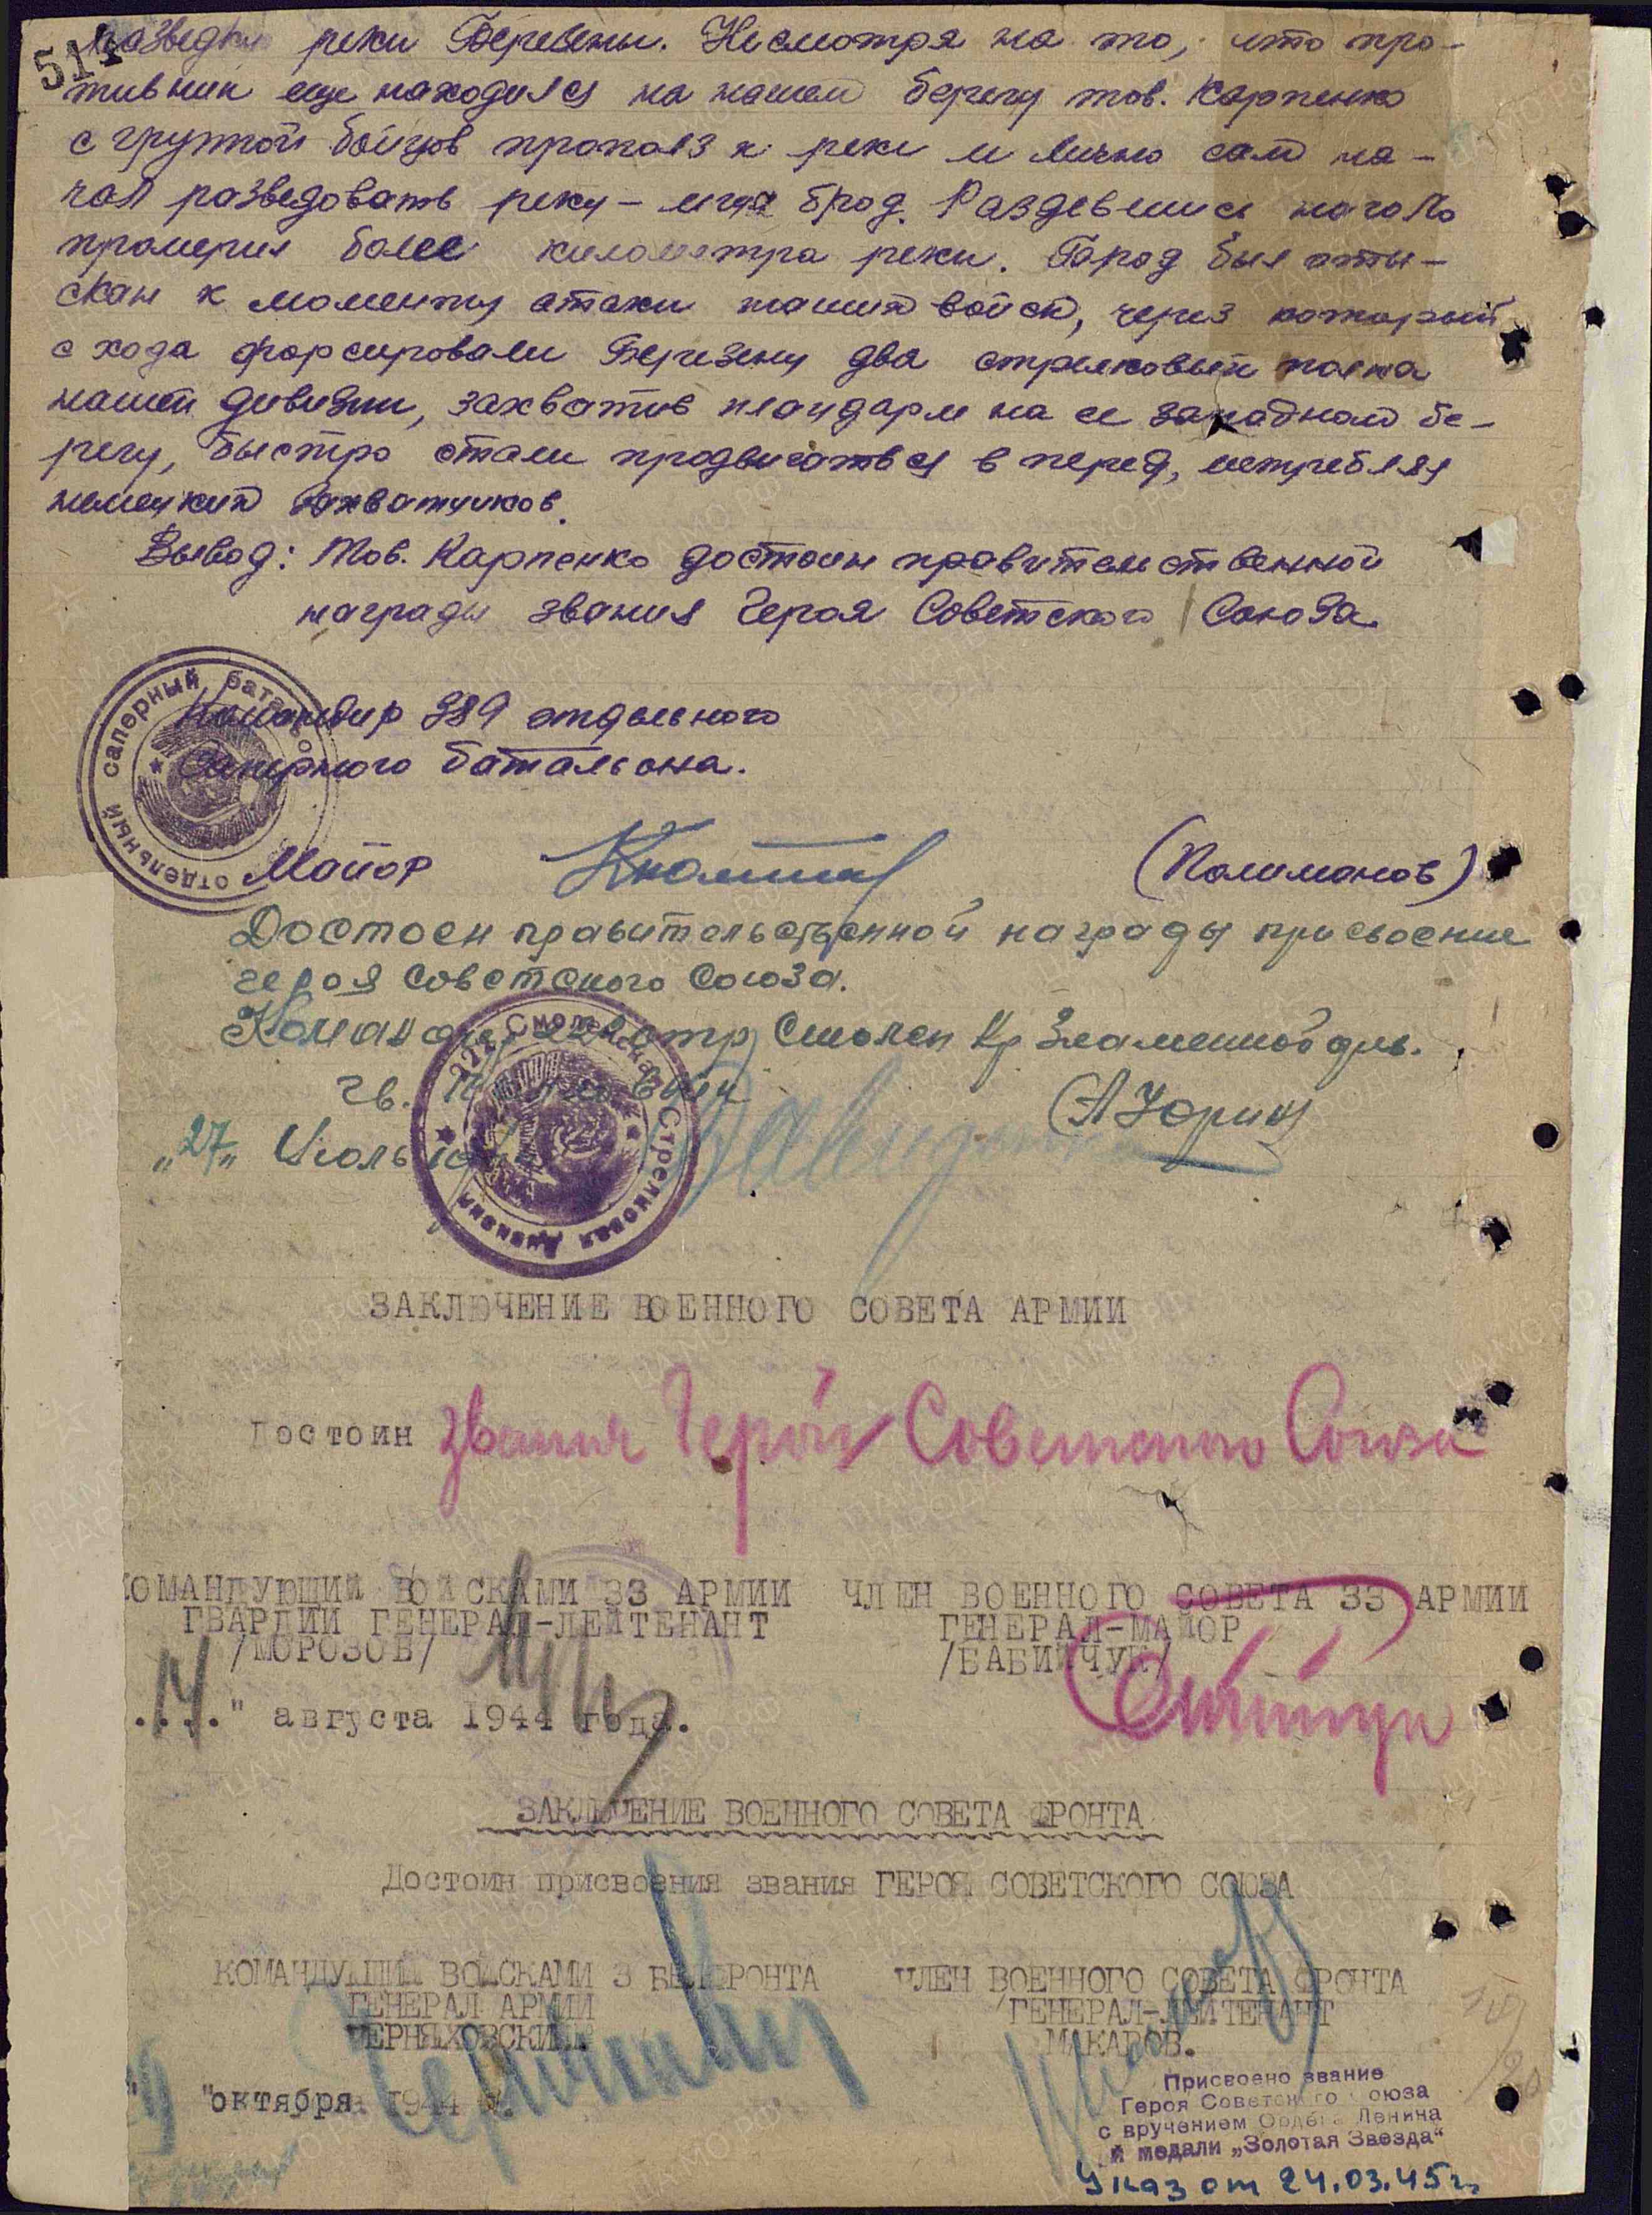 514
разведки реки Березены. Несмотря на то, что про-
тивник еще находился на нашем берегу тов. Карпенко
с группой бойцов прополз к реке и лично сам на-
чал разведовать реку – ища брод. Раздевшись наголо
промерил более километра реки. Брод был оты-
скан к моменту атаки наших войск, через который
с хода форсировали Березену два стрелковых полка
нашей дивизии, захватив плацдарм на ее западном бе-
регу, быстро стали продвигаться в перед, истребляя
немецких захватчиков.
Вывод: Тов. Карпенко достоин правительственной
награды звания Героя Советского Союза.
отдельный саперный батальон
Командир 389 отдельного
саперного батальона.
Майор (Полиманов)
Достоен правительственной награды присвоение
героя Советского Союза.
Командир 222 стр Смолен Кр Знаменной див.
гв.
(А Юрин
"27" Июль
Смоленская Стрелковая Дивизия
ЗАКЛЮЧЕНИЕ ВОЕННОГО СОВЕТА АРМИИ
Достоин звания Герой Советского Союза
КОМАНДУЮЩИЙ ВОЙСКАМИ 33 АРМИИ ЧЛЕН ВОЕННОГО СОВЕТА 33 АРМИИ
ГВАРДИИ ГЕНЕРАЛ-ЛЕЙТЕНАНТ ГЕНЕРАЛ-МАЙОР
/МОРОЗОВ/ /БАБИЙЧУК/
"14" августа 1944 года.
ЗАКЛЮЧЕНИЕ ВОЕННОГО СОВЕТА ФРОНТА
Достоин присвоения звания ГЕРОЯ СОВЕТСКОГО СОЮЗА
КОМАНДУЮЩИЙ ВОЙСКАМИ 3 БЕЛ.ФРОНТА ЧЛЕН ВОЕННОГО СОВЕТА ФРОНТА
ГЕНЕРАЛ АРМИИ ГЕНЕРАЛ-ЛЕЙТЕНАНТ
ЧЕРНЯХОВСКИЙ МАКАРОВ.
"октября 1944 г.
Присвоено звание
Героя Советского Союза
с вручением Ордена Ленина
и медали „Золотая Звезда"
Указ от 24.03.45г.